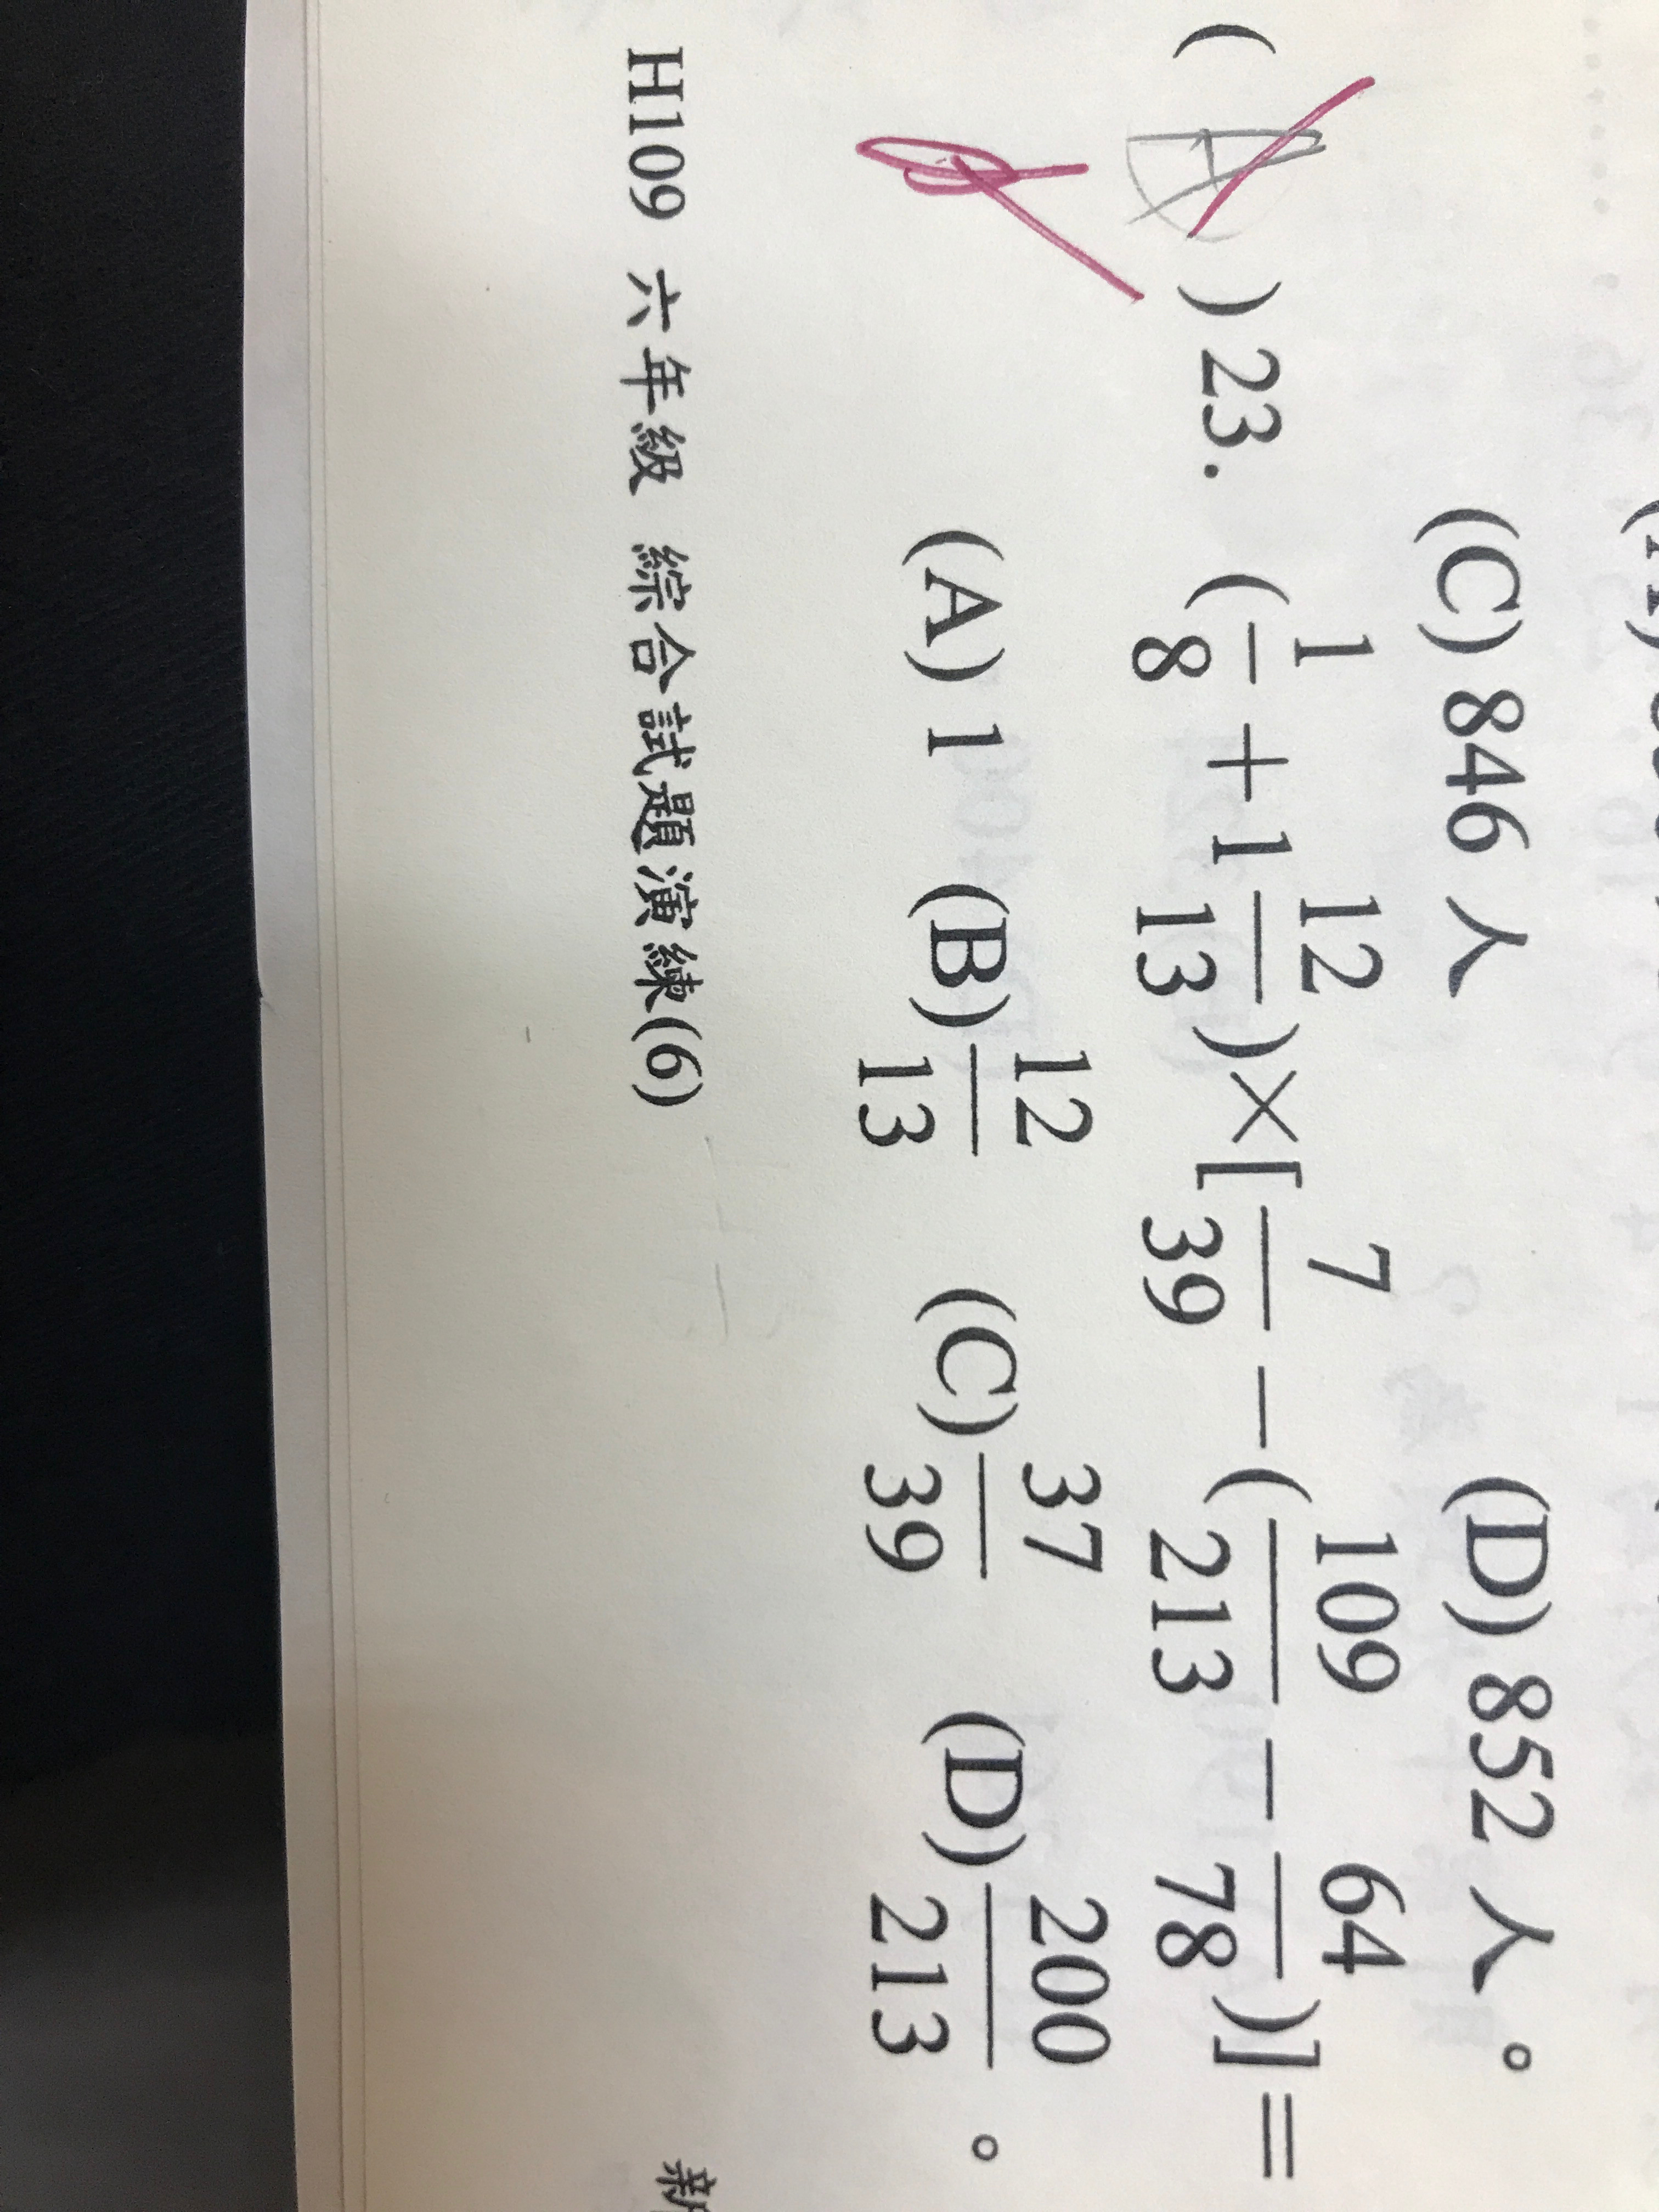 (C) 846 人 (D) 852 人。
( A ) 23. (1/8 + 1 12/13) × [7/39 − (109/213 − 64/78)] =
(A) 1 (B) 12/13 (C) 37/39 (D) 200/213 。
H109 六年級 綜合試題演練(6)